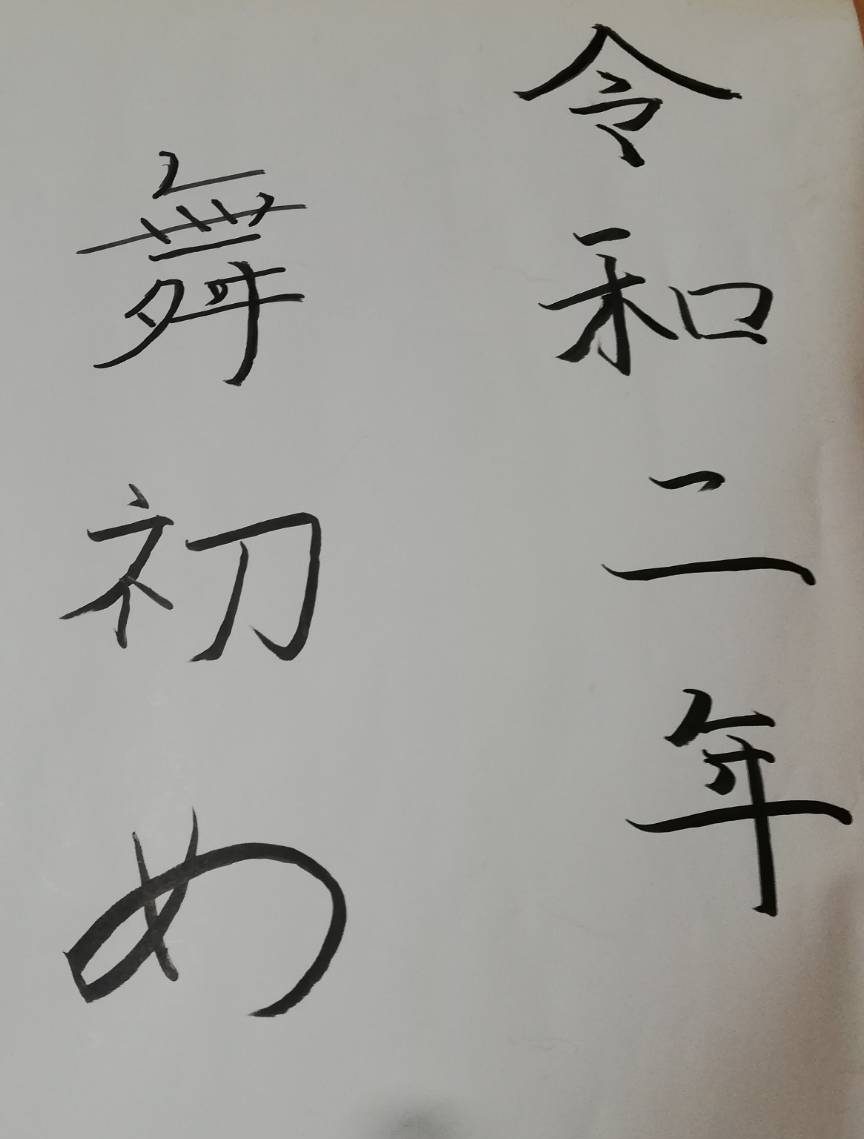 令和二年
舞初め